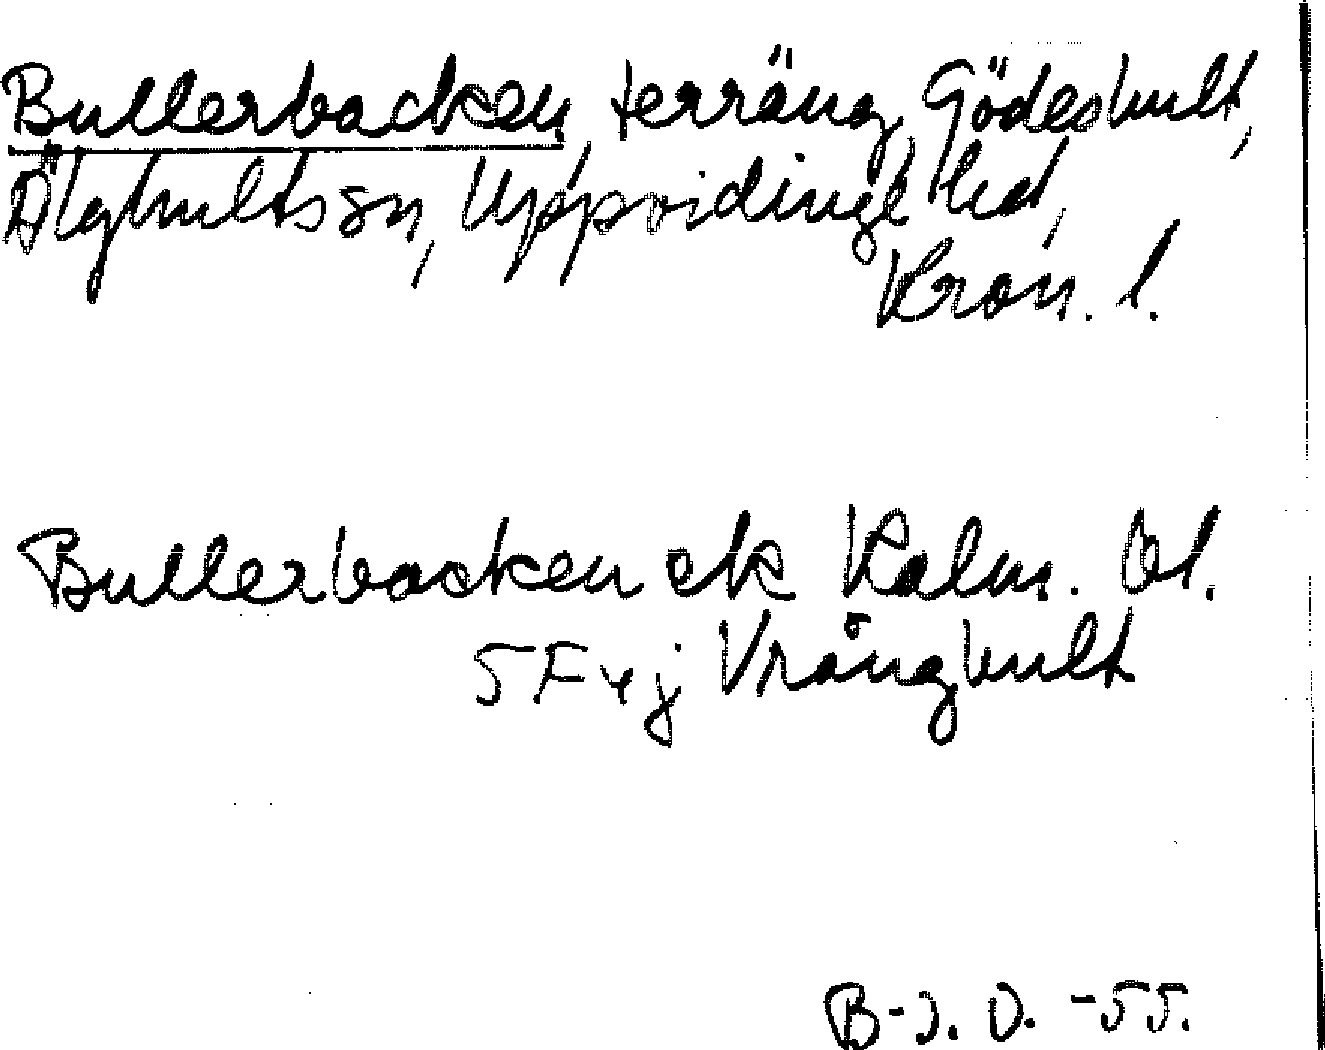 Bullerbacken, terräng, Gödeshult,
Älghults sn, Uppvidinge hd,
Kron. l.
Bullerbacken ek Kalm. bl.
5 F 4 j Vrånghult
B-J. O. -55.